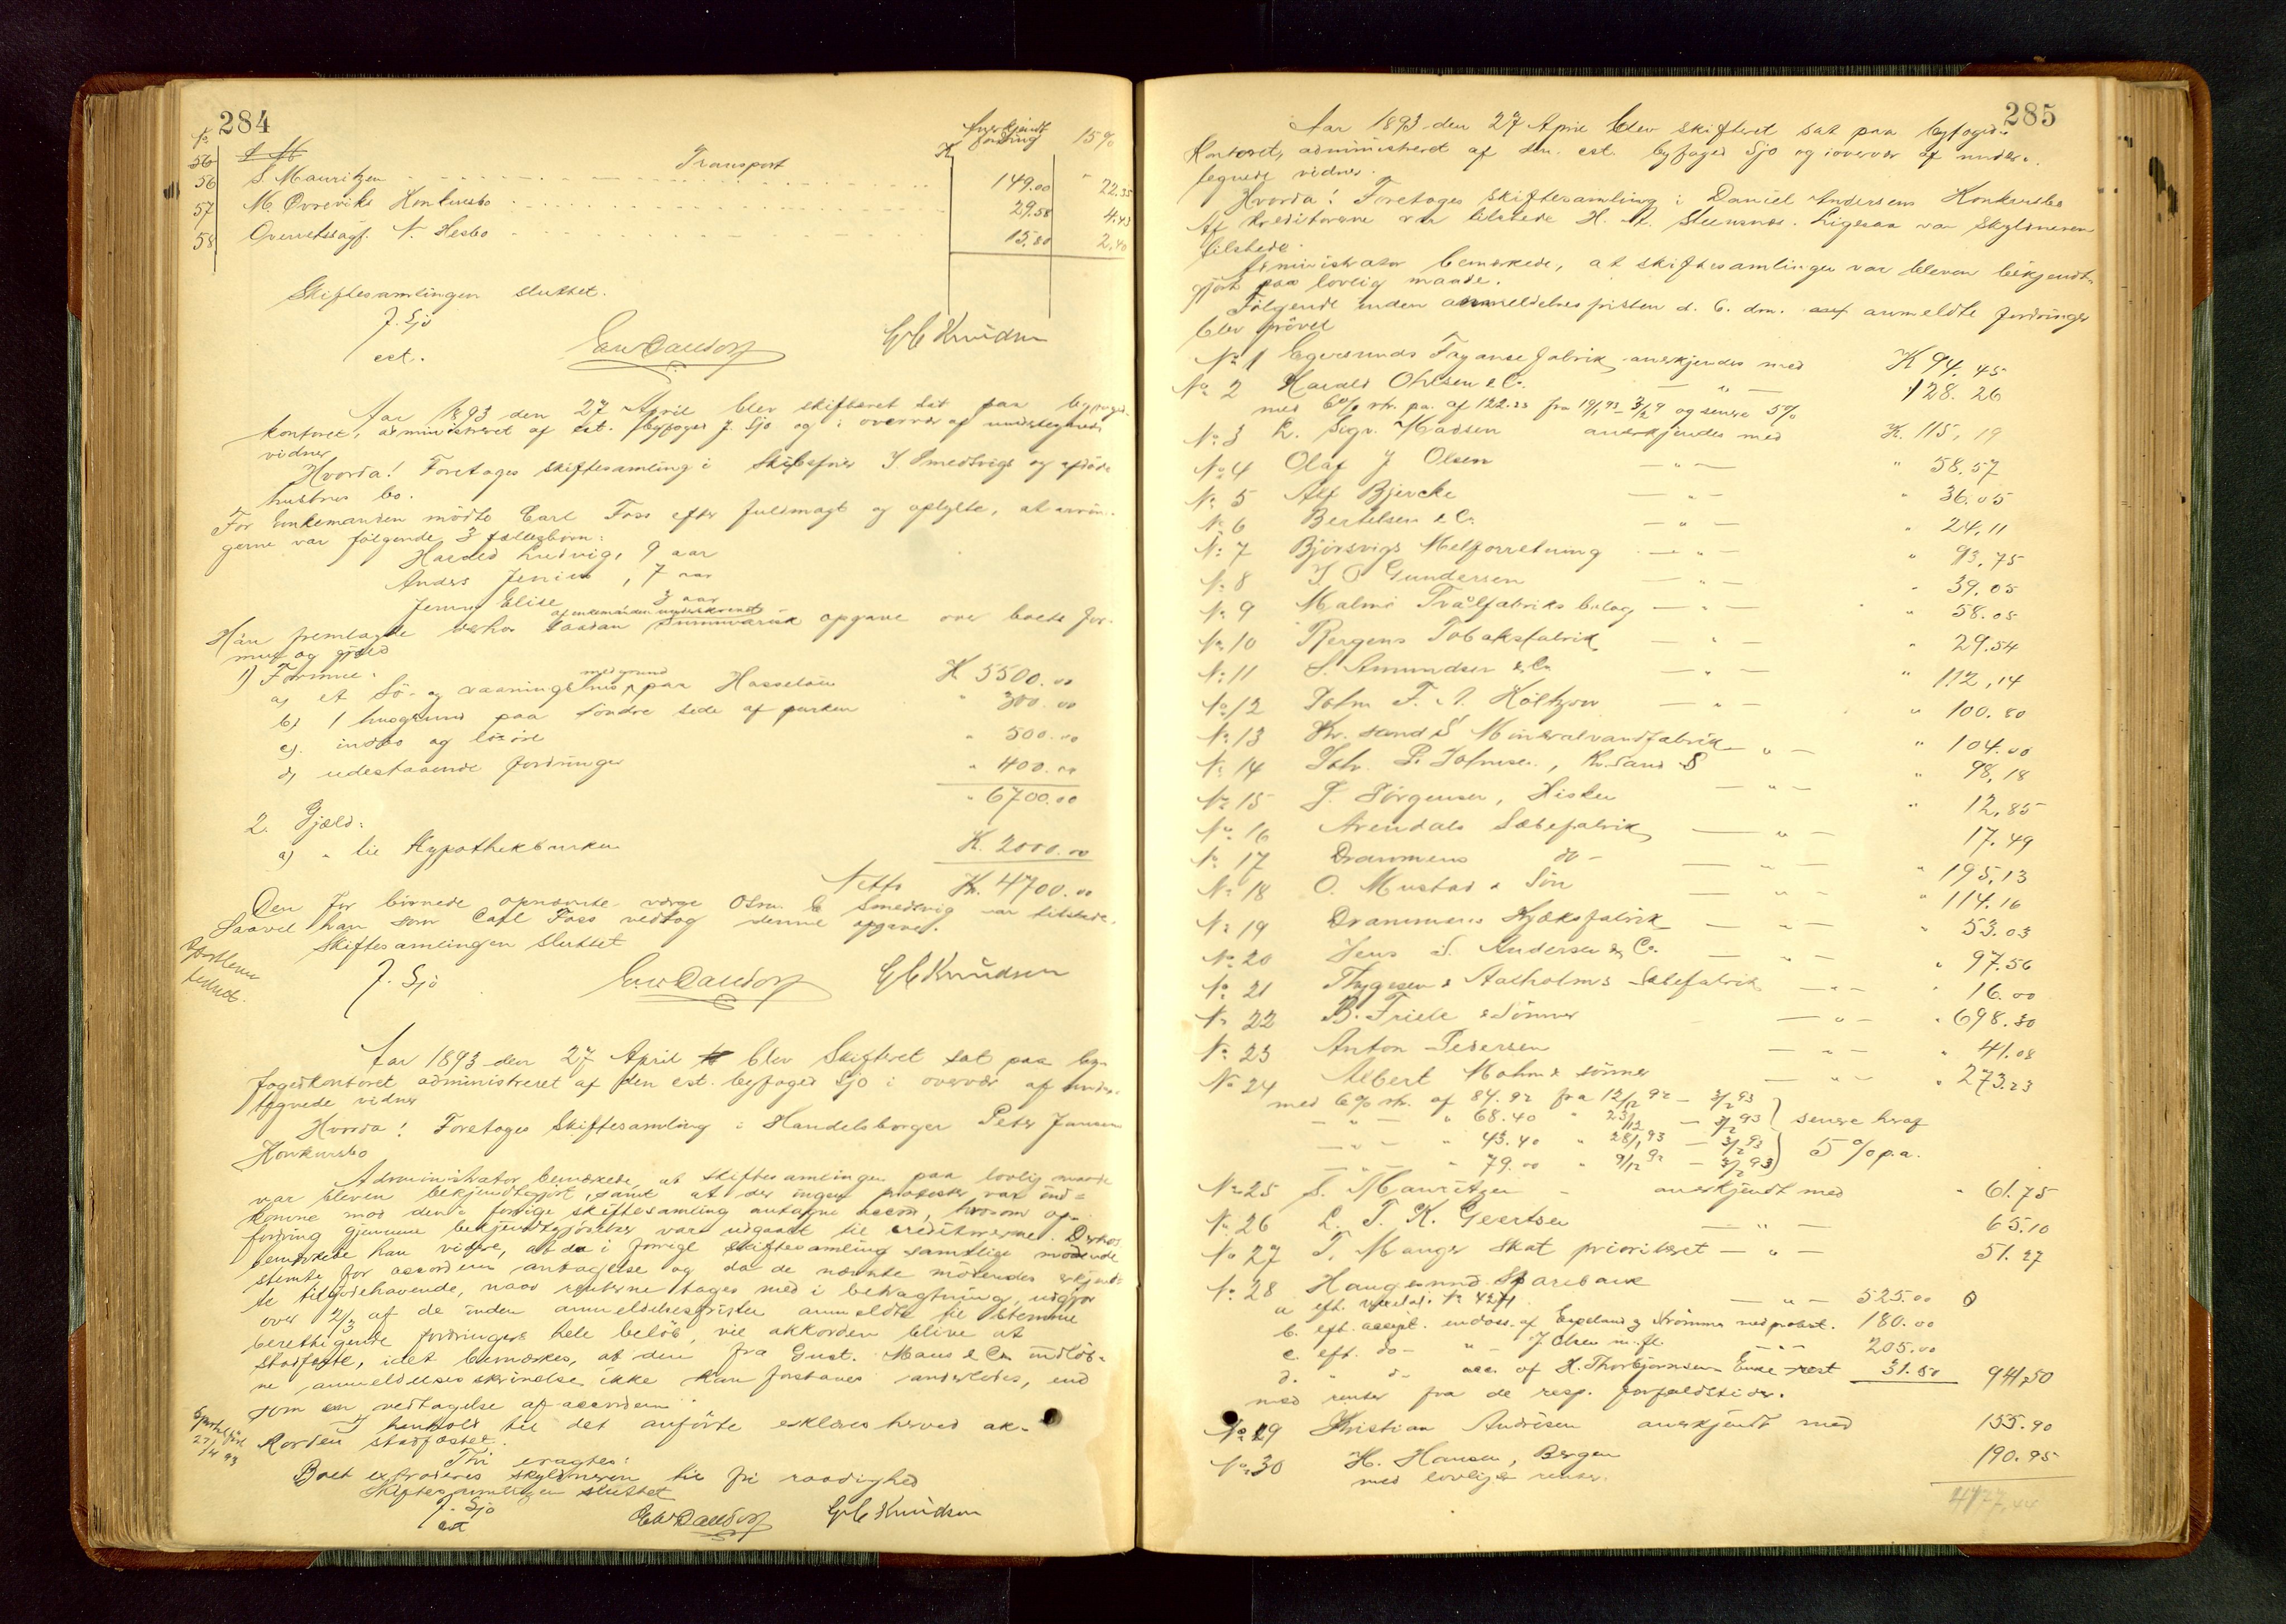 284
No
anerkjendt fordring 15%
56
Transport
56 S. Mauritzen 149.00 " 22.35
57 M. Øvreviks Konkursbo 29.58 4.43
58 Overretssagf. N. Hesbo 15.80 2.40
Skiftesamlingen sluttet.
J. Sjo
cst.
G C Knudsen
Aar 1893 den 27 April blev skifteret sat paa byfoged-
kontoret, administreret af cst. byfoged J. Sjo og i overvær af undertegnede
vidner
Hvorda! Foretoges skiftesamling i Skibsfører J. Smedsvigs og afdøde
hustrus bo.
For Enkemanden mødte Carl Foss efter fuldmagt og oplyste, at arvin-
gerne var følgende 3 fællesbørn:
Harald Ludvig, 9 aar
Anders Jenius, 7 aar
Jenny Elise 3 aar
af enkemanden underskrevet
Han fremlagde derhos saadan summarisk opgave over boets for-
mue og gjæld
1) Formue:
a) et Sø- og vaaningshus med grund paa Hasseløen K 5500.00
b) 1 husgrund paa søndre side af parken " 300.00
c) indbo og løsøre " 500.00
d) udestaaende fordringer " 400.00
" 6700.00
2. Gjæld:
a) " til Hypothekbanken K. 2000.00
Netto Kr. 4700.00
Den for børnene opnævnte værge Osm. E Smedsvig var tilstede.
Saavel han som Carl Foss vedtog denne opgave.
Skiftesamlingen sluttet
J. Sjo
G C Knudsen
Aar 1893 den 27 April blev Skifteret sat paa by-
fogedkontoret administreret af den cst. byfoged Sjo i overvær af under-
tegnede vidner
Hvorda! Foretoges Skiftesamling i Handelsborger Peter Jansen
Konkursbo
Administrator bemærkede, at skiftesamlingen paa lovlig maade
var bleven bekjendtgjort, samt at der ingen protester var ind-
komne mod den i forrige skiftesamling antagne accord, hvorom op-
fordring gjennem bekjendtgjørelser vare udgaaet til creditorerne. Derhos
bemærkede han videre, at da i forrige skiftesamling samtlige mødende
stemte for accordens antagelse og da de nævnte mødendes erkjend-
te tilgodehavende, naar renterne tages med i betragtning, udgjør
over 2/3 af de inden anmeldelsesfristen anmeldte til stemme
berettigende fordringers hele beløb, vil akkorden blive at
stadfæste, idet bemærkes, at den fra Gust. Maus & Co indløb-
ne anmeldelsesskrivelse ikke kan forstaaes anderledes, end
som en vedtagelse af accorden.
I henhold til det anførte erklæres herved ak-
korden stadfæstet.
Thi eragtes:
Boet extraderes skyldneren til fri raadighed
Skiftesamlingen sluttet
J. Sjo
cst
G C Knudsen
285
Aar 1893 den 27 April blev skifteret sat paa byfoged-
kontoret, administreret af den cst. byfoged Sjo og i overvær af under-
tegnede vidner.
Hvorda! Foretoges skiftesamling i Daniel Andersens Konkursbo
Af kreditorerne var tilstede H. A. Steensnæs. Ligesaa var Skyldneren
tilstede.
Administrator bemærkede, at skiftesamlingen var bleven bekjendt-
gjort paa lovlig maade.
Følgende inden anmeldelsesfristen d. 6. dm. anmeldte fordringer
blev prøvet
No 1 Egersunds Fayancefabrik anerkjendes med K 94.45
No 2 Harald Ohlsen & Co. — " — 128.26
med 6% rtr. pa. af 122.23 fra 19/1 93 - 3/2 93 og senere 5%
No 3 R. Sigv. Madsen anerkjendes med K. 115,19
No 4 Olaf J Olsen — " — " 58.57
No 5 Alf Bjercke — " — " 36.05
No 6 Bertelsen & Co — " — " 24,11
No 7 Bjørsvigs Melforretning — " — " 93,75
No 8 J. O Gundersen — " — " 39.05
No 9 Malmö Tvålfabriks bolag — " — " 58.05
No 10 Bergens Tobaksfabrik — " — " 29.54
No 11 S. Amundsen & Co — " — " 112,14
No 12 John F. A. Høltzow — " — " 100.80
No 13 Kr. sand S Mineralvandfabrik — " — " 104.00
No 14 Joh. P. Johnsen, Kr. sand S 98,18
No 15 P. Jørgensen, Hisken — " — " 12,85
No 16 Arendals Sæbefabrik — " — 17.49
No 17 Drammens do — — " — " 195,13
No 18 O. Mustad & Søn — " — " 114.16
No 19 Drammens Kjæksfabrik — " — " 53.03
No 20 Jens S. Andersen & Co. — " — " 97.56
No 21 Thygesen & Aalholms Sæbefabrik — " — " 16.00
No 22 B. Friele & Sønner — " — " 698.30
No 23 Anton Pedersen — " — " 41.08
No 24 Albert Mohn & sønner — " — " 273.23
med 6% rtr. af 84.92 fra 12/12 92 — 3/2 93
— " — " 68.40 " 23/12 — 3/2 93 senere heraf
— " — " 43.40 " 28/1 93 — 3/2 93 5 % p.a.
— " — " 79.00 " 9/12 92 — 3/2 93
No 25 S. Mauritzen anerkjendt med " 61.75
No 26 L. T. K. Geertsen — " — 65.10
No 27 T. Manger skat prioritert — " — 51.27
No 28 Haugesund Sparebank
a eft. vexelobl. No 4271 — " — 525.00
b. eft. accept. endoss. af Espeland & Strømme med protest. 180.00
c. eft. do — " — J Olsen m. fl. — " — 205.00
d. " d— acc. af H. Thorbjørnsens Enke rest 31.50 941,50
med renter fra de resp. forfaldstider.
No 29 Kristian Andrésen anerkjendt med 155.90
No 30 H. Hansen, Bergen 190.95
med lovlige renter.
4177,44